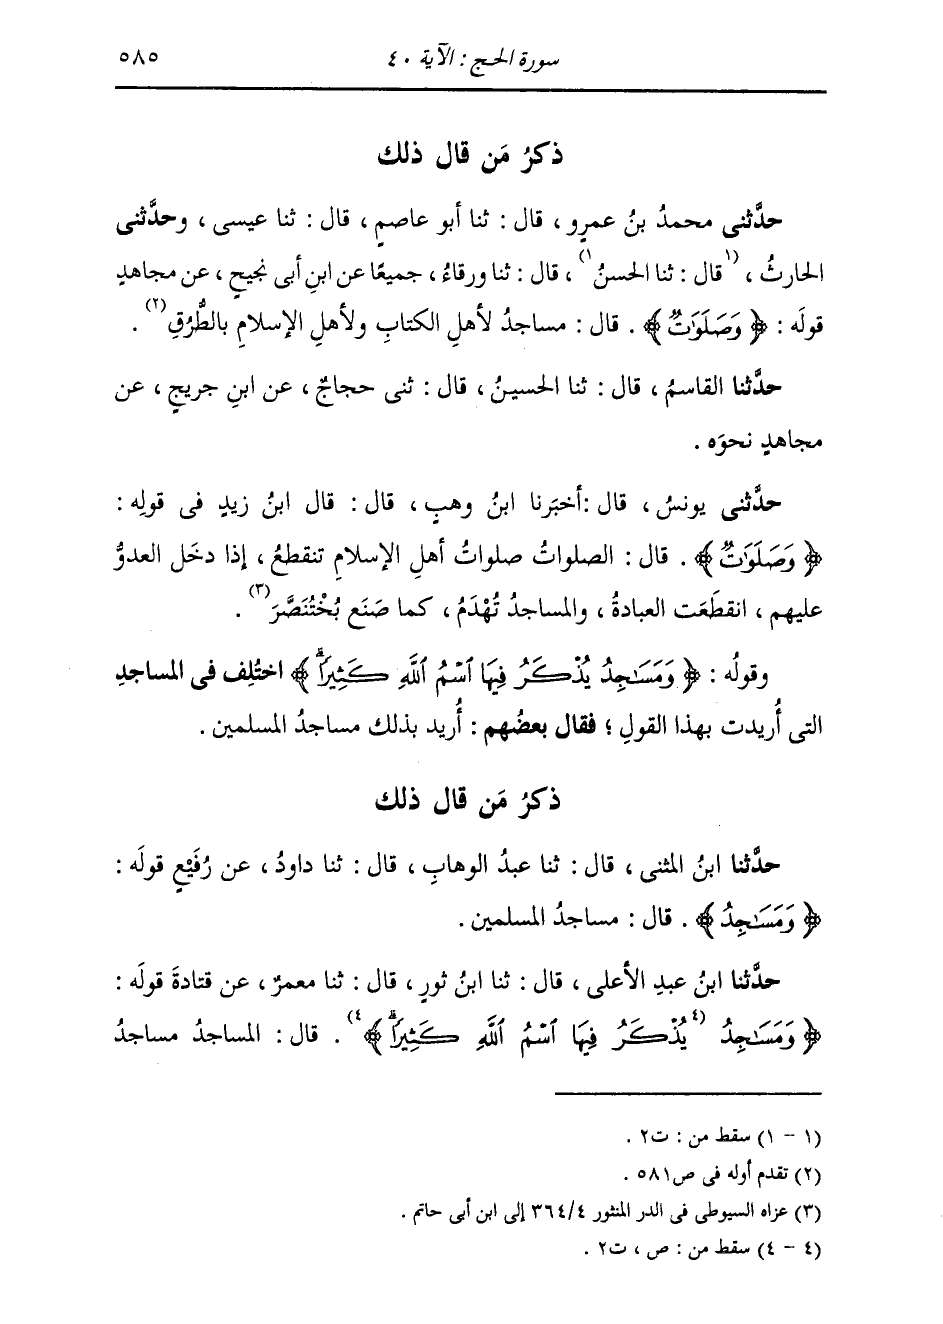 سورة الحج : الآية ٤٠
٥٨٥
ذكرُ مَن قال ذلك
حدَّثنى محمدُ بنُ عمرٍو ، قال : ثنا أبو عاصمٍ ، قال : ثنا عيسى ، وحدَّثنى
الحارثُ ، (١) قال : ثنا الحسنُ (١) ، قال : ثنا ورقاءُ ، جميعًا عن ابنِ أبى نجيحٍ ، عن مجاهدٍ
قولَه : ﴿ وَصَلَوَٰتٌ ﴾ . قال : مساجدُ لأهلِ الكتابِ ولأهلِ الإسلامِ بالطُّرُقِ (٢) .
حدَّثنا القاسمُ ، قال : ثنا الحسينُ ، قال : ثنى حجاجٌ ، عن ابنِ جريجٍ ، عن
مجاهدٍ نحوَه .
حدَّثنى يونسُ ، قال :أخبَرنا ابنُ وهبٍ ، قال : قال ابنُ زيدٍ فى قولِه :
﴿ وَصَلَوَٰتٌ ﴾ . قال : الصلواتُ صلواتُ أهلِ الإسلامِ تنقطعُ ، إذا دخَل العدوُّ
عليهم ، انقطَعَت العبادةُ ، والمساجدُ تُهْدَمُ ، كما صَنَع بُخْتُنَصَّرَ (٣) .
وقولُه : ﴿ وَمَسَٰجِدُ يُذْكَرُ فِيهَا ٱسْمُ ٱللَّهِ كَثِيرًا ﴾ اختُلِف فى المساجدِ
التى أُريدت بهذا القولِ ؛ فقال بعضُهم : أُريد بذلك مساجدُ المسلمين .
ذكرُ مَن قال ذلك
حدَّثنا ابنُ المثنى ، قال : ثنا عبدُ الوهابِ ، قال : ثنا داودُ ، عن رُفَيْعٍ قولَه :
﴿ وَمَسَٰجِدُ ﴾ . قال : مساجدُ المسلمين .
حدَّثنا ابنُ عبدِ الأعلى ، قال : ثنا ابنُ ثورٍ ، قال : ثنا معمرٌ ، عن قتادةَ قولَه :
﴿ وَمَسَٰجِدُ (٤) يُذْكَرُ فِيهَا ٱسْمُ ٱللَّهِ كَثِيرًا ﴾ (٤) . قال : المساجدُ مساجدُ
(١ - ١) سقط من : ت٢ .
(٢) تقدم أوله فى ص٥٨١ .
(٣) عزاه السيوطى فى الدر المنثور ٣٦٤/٤ إلى ابن أبى حاتم .
(٤ - ٤) سقط من : ص ، ت٢ .